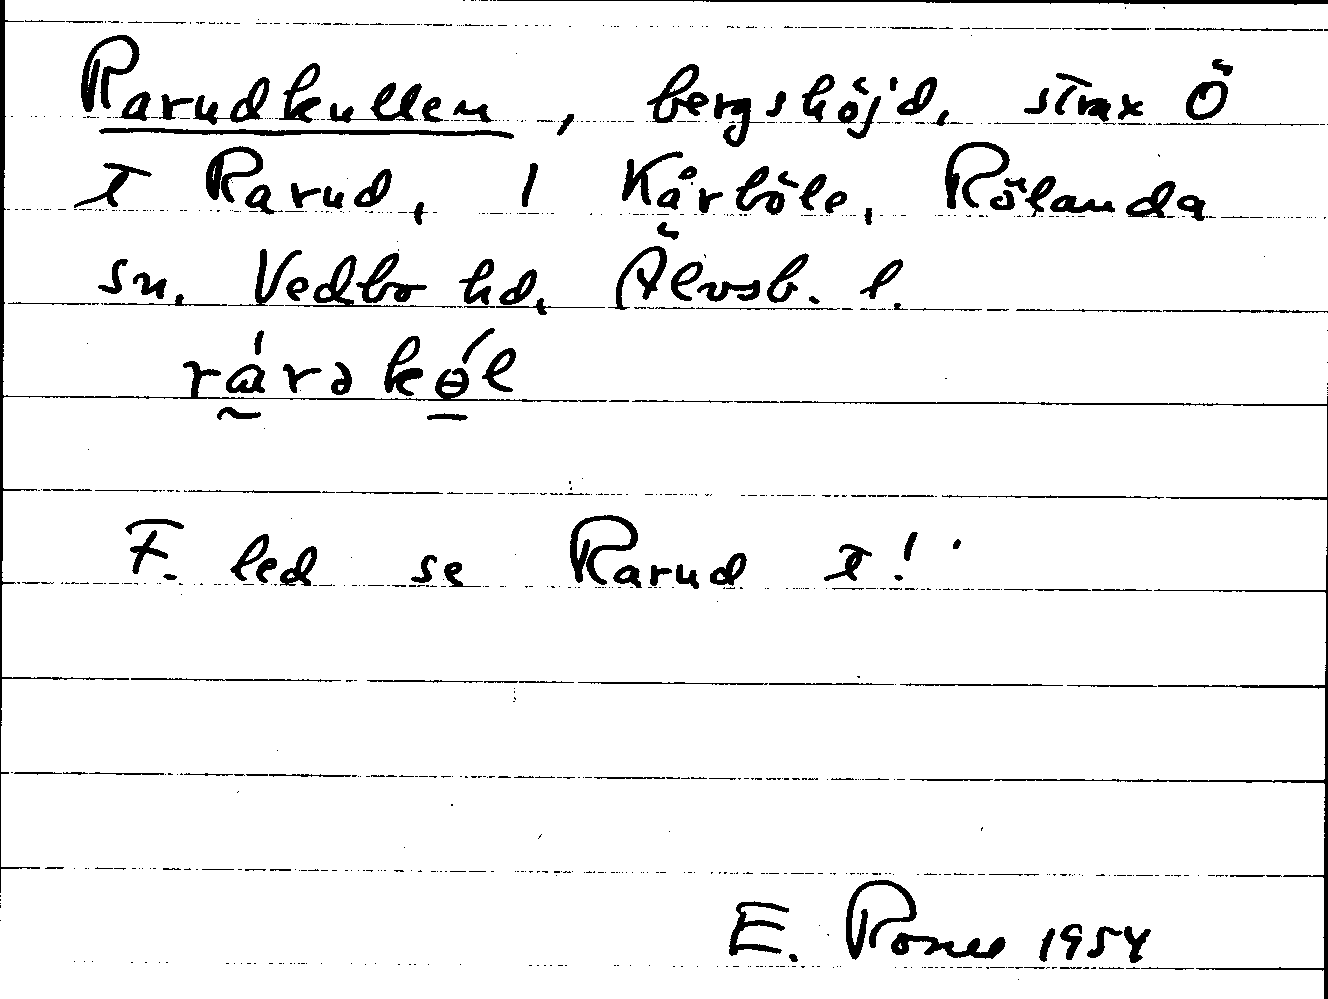 Rarudkullen, bergshöjd, strax Ö
t Rarud, 1 Kårböle, Rölanda
sn, Vedbo hd, Älvsb. l.
rárəkɵ́l
F. led se Rarud t!
E. 1954